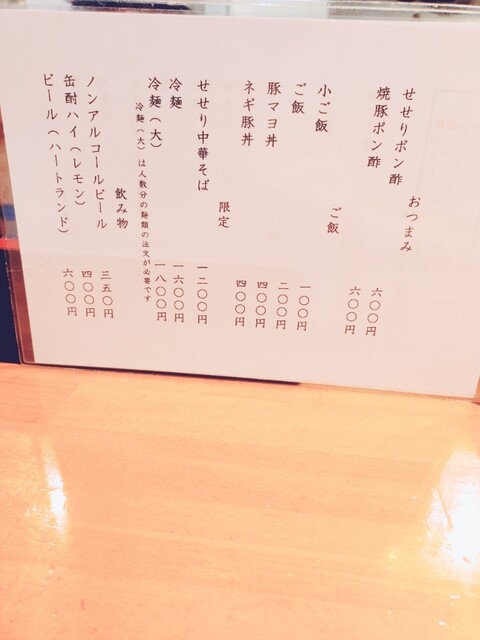 おつまみ
せせりポン酢 六〇〇円
焼豚ポン酢 六〇〇円
ご飯
小ご飯 一〇〇円
ご飯 二〇〇円
豚マヨ丼 四〇〇円
ネギ豚丼 四〇〇円
限定
せせり中華そば 一二〇〇円
冷麺 一六〇〇円
冷麺(大) 一八〇〇円
冷麺(大)は人数分の麺類の注文が必要です
飲み物
ノンアルコールビール 三五〇円
缶酎ハイ(レモン) 四〇〇円
ビール(ハートランド) 六〇〇円